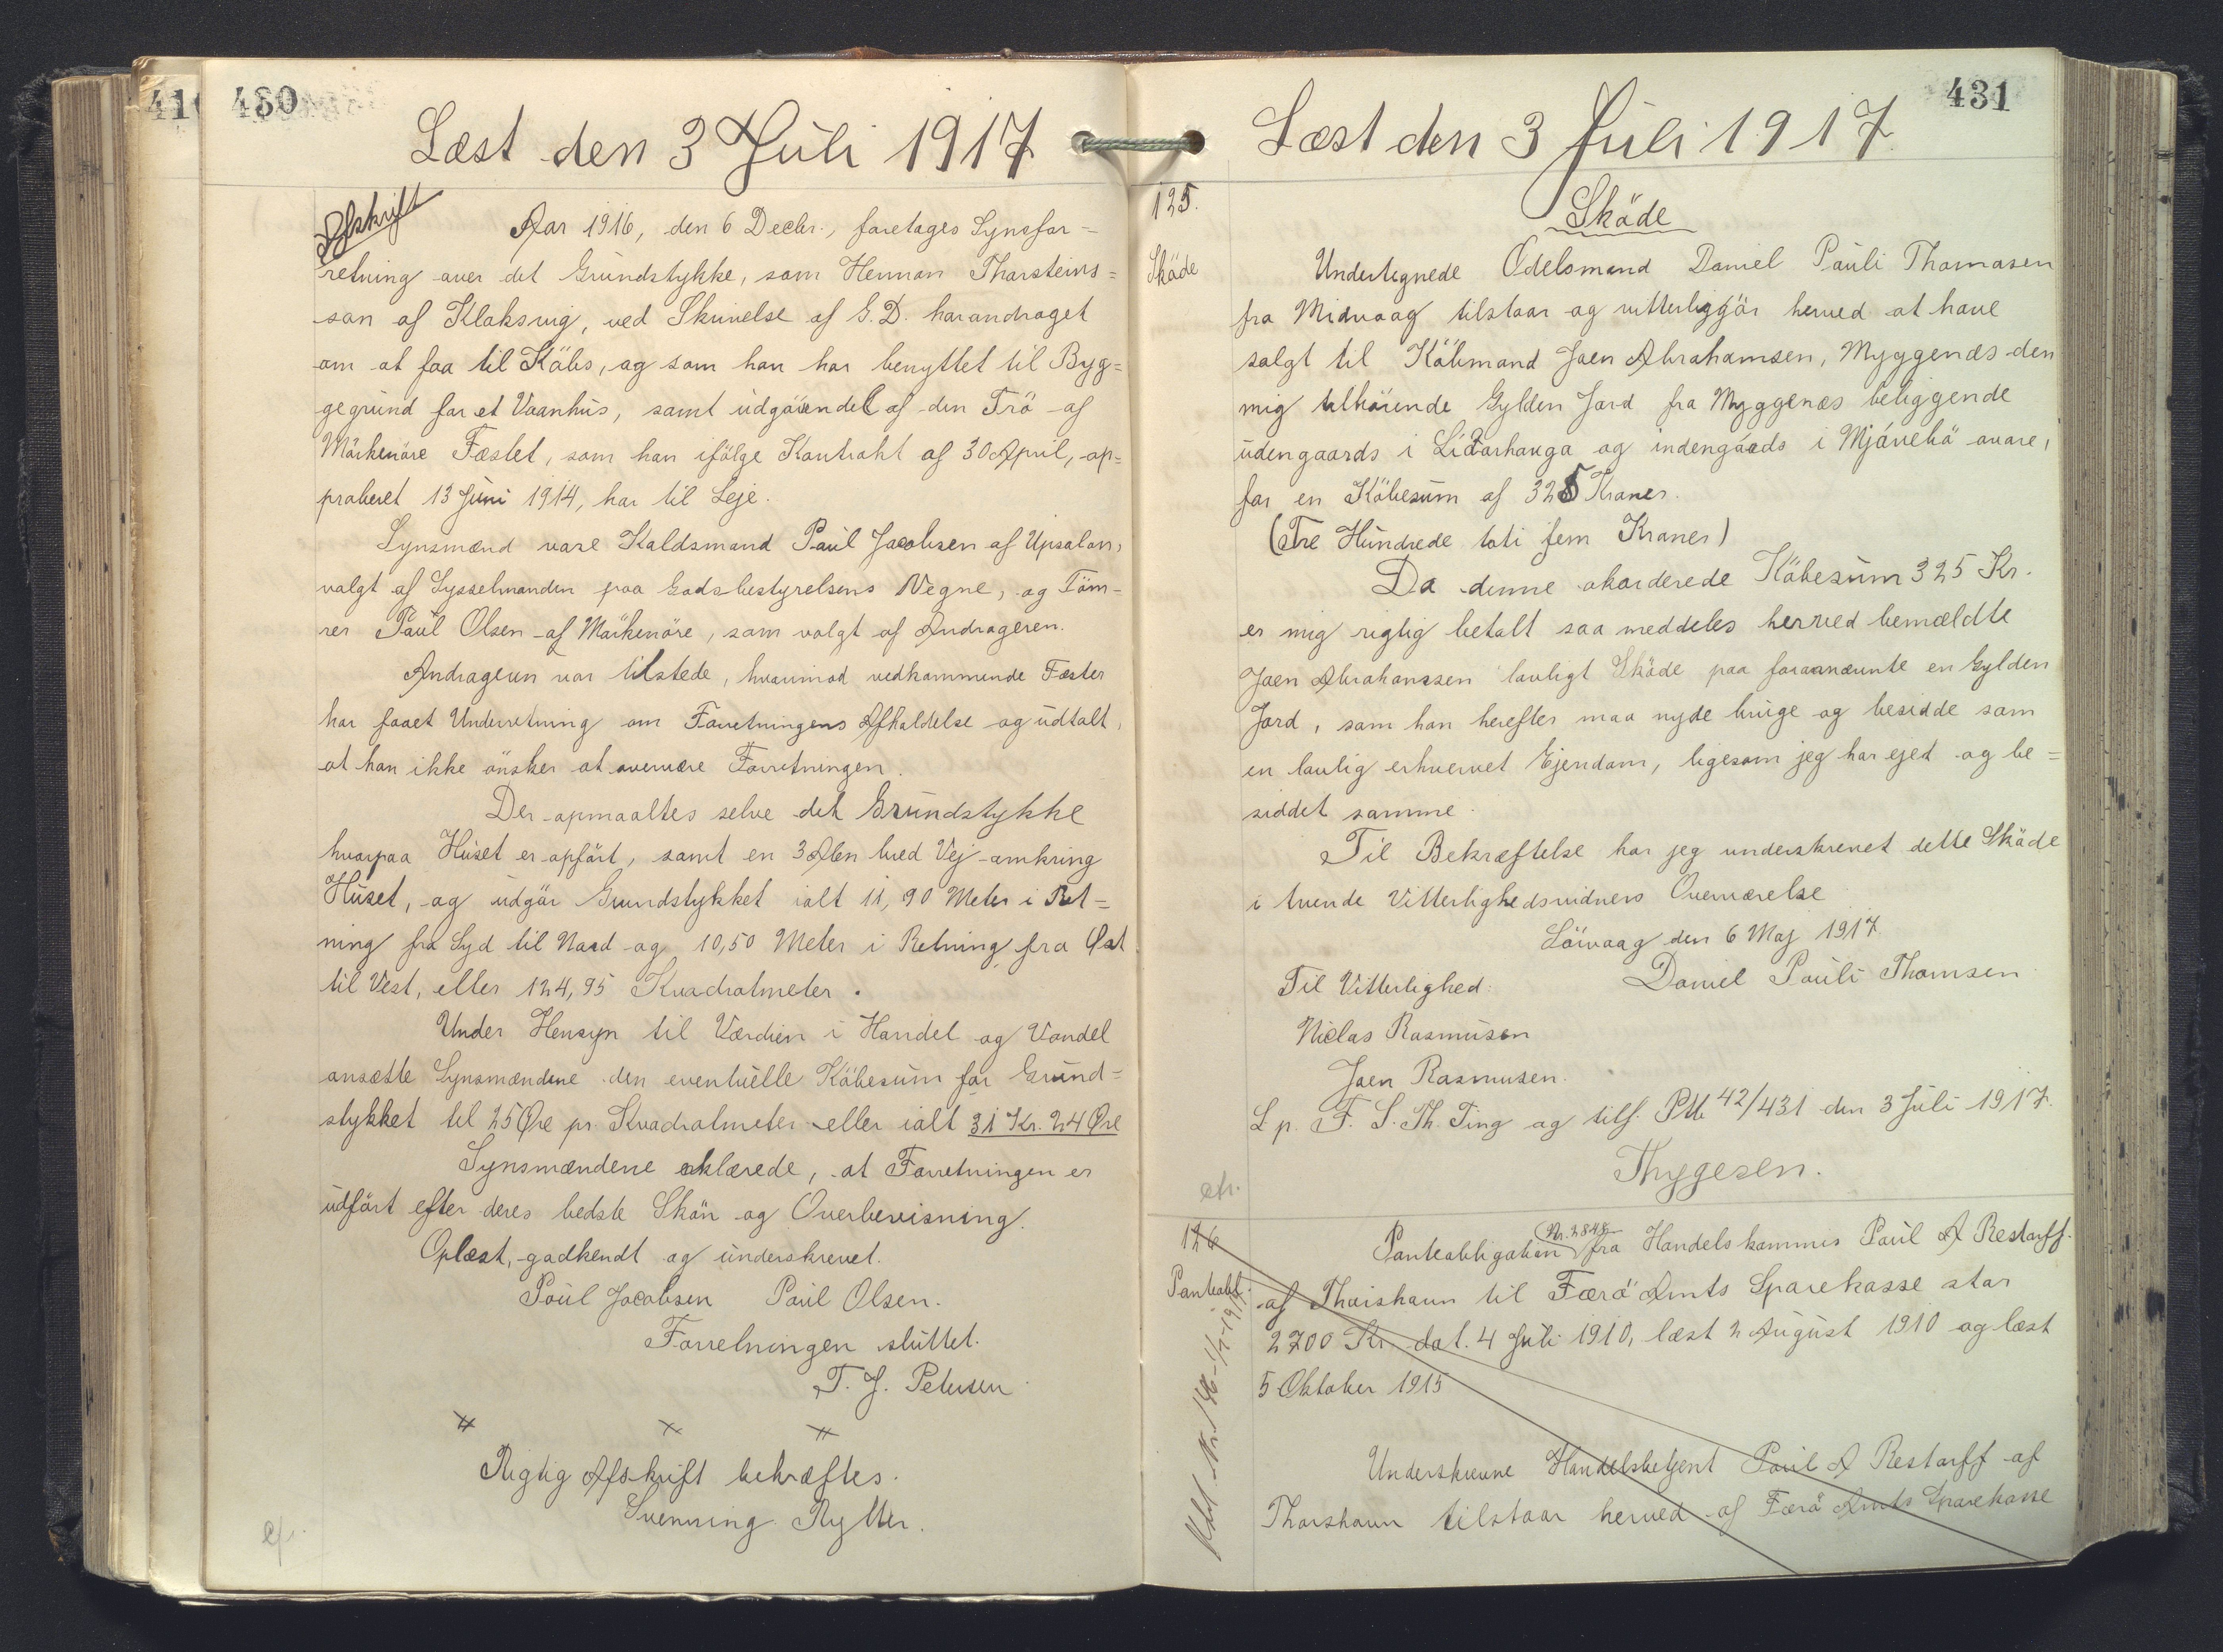 430
Læst den 3 Juli 1917
Afskrift
Aar 1916, den 6 Decbr., foretages Synsfor=
retning over det Grundstykke, som Heman Thorsteins=
son af Klaksvig, ved Skrivelse af G.D. har andraget
om at faa til Köbs, og som han har benyttet til Byg=
gegrund for et Vaanhus, samt udgöiendel af den Trö af
Mörkenöre Fæstet, som han ifölge Kontrakt af 30 April, ap=
proberet 13 Juni 1914, har til Leje.
Synsmænd vare Kaldsmand Paul Jacobsen af Upsalon,
valgt af Sysselmanden paa Godsbestyrelsens Vegne, og Töm=
rer Paul Olsen af Mörkenöre, som valgt af Andrageren.
Andrageren var tilstede, hvorimod vedkommende Fæster
har faaet Underretning om Forretningens Afholdelse og udtalt,
at han ikke önsker at overvære Forretningen.
Der opmaaltes selve det Grundstykke
hvorpaa Huset er opfört, samt en 3 Alen bred Vej omkring
Huset, og udgör Grundstykket ialt 11,90 Meter i Ret=
ning fra Syd til Nord og 10,50 Meter i Retning fra Øst
til Vest, eller 124,95 Kvadratmeter.
Under Hensyn til Værdien i Handel og Vandel
ansætte Synsmændene den eventuelle Köbesum for Grund=
stykket til 25 Øre pr. Kvadratmeter eller ialt 31 Kr. 24 Øre
Synsmændene erklærede, at Forretningen er
udfört efter deres bedste Skön og Overbevisning.
Oplæst, godkendt og underskrevet.
Poul Jacobsen Paul Olsen.
Forretningen sluttet.
T. J. Petersen
Rigtig Afskrift bekræftes.
Svenning Rytter.
431
Læst den 3 Juli 1917
125.
Sköde
Sköde
Undertegnede Odelsmand Daniel Pauli Thomasen
fra Midvaag tilstaar og vitterliggör herved at have
solgt til Köbmand Joen Abrahamsen, Myggenæs den
mig tilhörende Gylden Jord fra Myggenæs beliggende
udengaards i Líðarhauga og indengaards i Mjávebö ovare,
for en Köbesum af 325 Kroner.
(Tre Hundrede toti fem Kroner)
Da denne akorderede Köbesum 325 Kr.
er mig rigtig betalt saa meddeles herved bemældte
Joen Abrahamsen lovligt Sköde paa foranævnte en Gylden
Jord, som han herefter maa nyde bruge og besidde som
en lovlig erhvervet Ejendom, ligesom jeg har ejet og be=
siddet samme.
Til Bekræftelse har jeg underskrevet dette Sköde
i tvende Vitterlighedsvidners Overværelse
Sörvaag den 6 Maj 1917
Til Vitterlighed: Daniel Pauli Thomsen
Niclas Rasmusen
Joen Rasmusen.
L p. F. S. Th. Ting og tilf. Ptb 42/431 den 3 Juli 1917.
Thygesen.
126
Panteobl.
Nr. 2848
Panteobligation fra Handelskommis Paul A Restorff
af Thorshavn til Færö Amts Sparekasse stor
2700 Kr. dat. 4 Juli 1910, læst 2 August 1910 og læst
5 Oktober 1915
Underskrevne Handelsbetjent Paul A Restorff af
Thorshavn tilstaar herved af Færö Amts Sparekasse